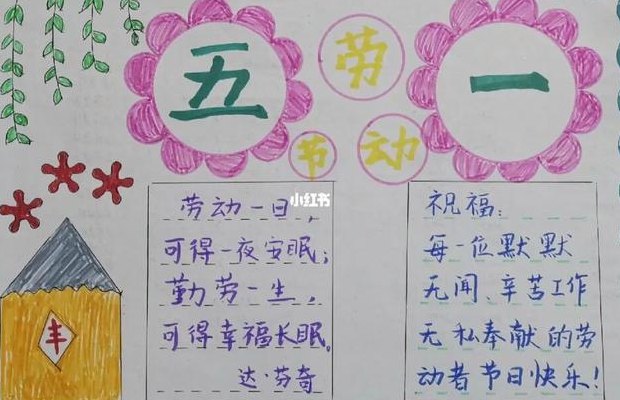 五一
劳动节
小红书
丰
劳动一日，
可得一夜安眠；
勤劳一生，
可得幸福长眠。
达·芬奇
祝福：
每一位默默
无闻、辛苦工作
无私奉献的劳
动者节日快乐！